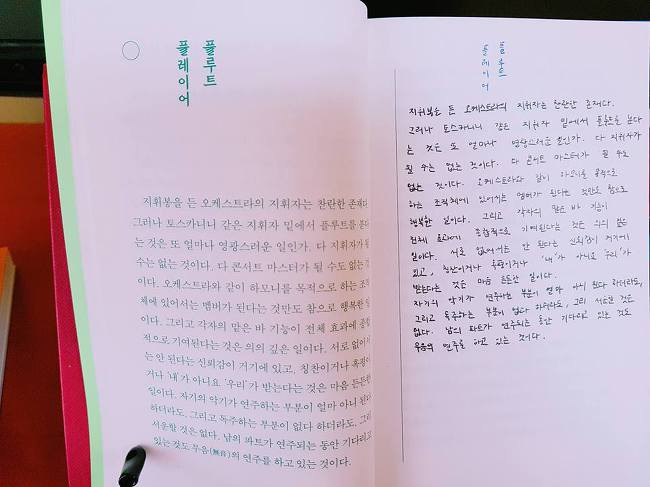 플루트
플레이어
지휘봉을 든 오케스트라의 지휘자는 찬란한 존재다.
그러나 토스카니니 같은 지휘자 밑에서 플루트를 분다
는 것은 또 얼마나 영광스러운 일인가. 다 지휘자가 될
수는 없는 것이다. 다 콘서트 마스터가 될 수도 없는 것
이다. 오케스트라와 같이 하모니를 목적으로 하는 조직
체에 있어서는 멤버가 된다는 것만도 참으로 행복한 일
이다. 그리고 각자의 맡은 바 기능이 전체 효과에 종합
적으로 기여된다는 것은 의의 깊은 일이다. 서로 없어서
는 안 된다는 신뢰감이 거기에 있고, 칭찬이거나 혹평이
거나 '내'가 아니요 '우리'가 받는다는 것은 마음 든든한
일이다. 자기의 악기가 연주하는 부분이 얼마 아니 된다
하더라도, 그리고 독주하는 부분이 없다 하더라도, 그리
서운할 것은 없다. 남의 파트가 연주되는 동안 기다리고
있는 것도 무음(無音)의 연주를 하고 있는 것이다.
플루트
플레이어
지휘봉을 든 오케스트라의 지휘자는 찬란한 존재다.
그러나 토스카니니 같은 지휘자 밑에서 플루트를 분다
는 것은 또 얼마나 영광스러운 일인가. 다 지휘자가
될 수는 없는 것이다. 다 콘서트 마스터가 될 수도
없는 것이다. 오케스트라와 같이 하모니를 목적으로
하는 조직체에 있어서는 멤버가 된다는 것만도 참으로
행복한 일이다. 그리고 각자의 맡은 바 기능이
전체 효과에 종합적으로 기여된다는 것은 의의 깊은
일이다. 서로 없어서는 안 된다는 신뢰감이 거기에
있고, 칭찬이거나 혹평이거나 '내'가 아니요 '우리'가
받는다는 것은 마음 든든한 일이다.
자기의 악기가 연주하는 부분이 얼마 아니 된다 하더라도,
그리고 독주하는 부분이 없다 하더라도, 그리 서운할 것은
없다. 남의 파트가 연주되는 동안 기다리고 있는 것도
무음의 연주를 하고 있는 것이다.